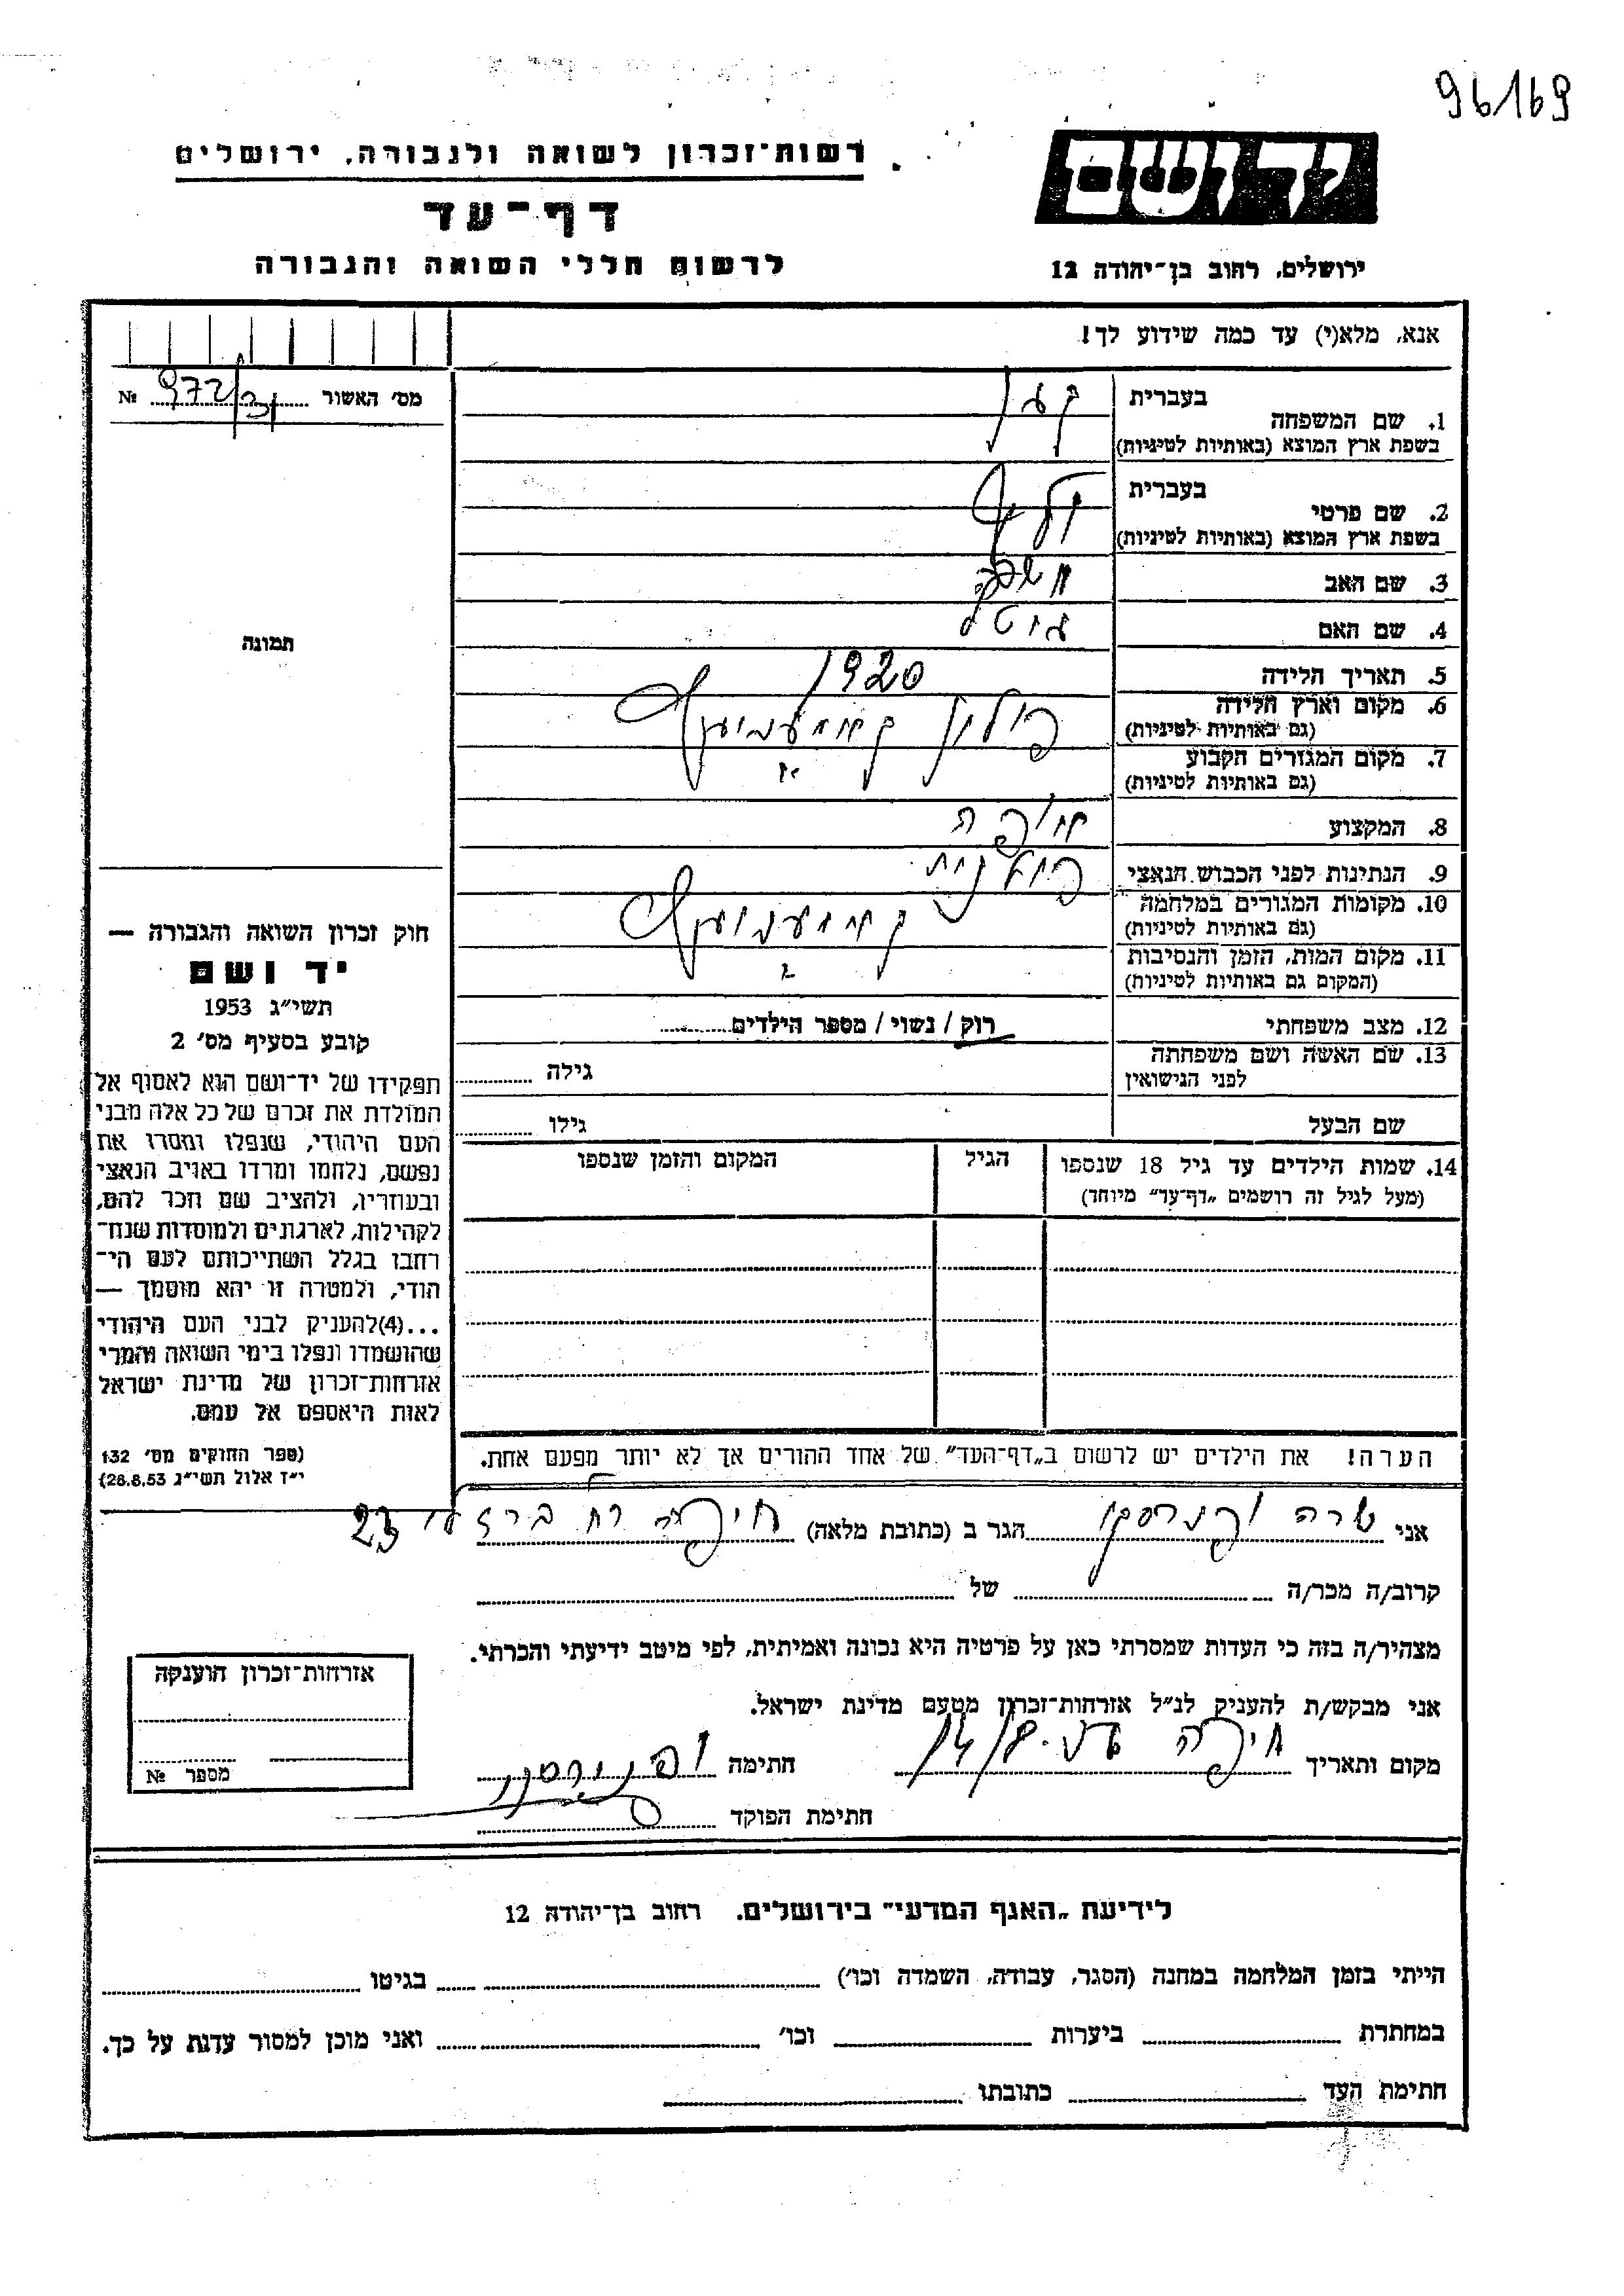 96169
רשות־זכרון לשואה ולגבורה, ירושלים
יד ושם
דף־עד
לרשום חללי השואה והגבורה
ירושלים, רחוב בן־יהודה 12
אנא, מלא(י) עד כמה שידוע לך!
מס׳ האשור № 972/31
1. שם המשפחה
בעברית
בשפת ארץ המוצא (באותיות לטיניות)
2. שם פרטי
בעברית
בשפת ארץ המוצא (באותיות לטיניות)
3. שם האב
4. שם האם גיטל
5. תאריך הלידה 1920
6. מקום וארץ הלידה פולין
(גם באותיות לטיניות)
7. מקום המגורים הקבוע
(גם באותיות לטיניות)
8. המקצוע
9. הנתינות לפני הכבוש הנאצי פולנית
10. מקומות המגורים במלחמה
(גם באותיות לטיניות)
11. מקום המות, הזמן והנסיבות
(המקום גם באותיות לטיניות)
12. מצב משפחתי רוק / נשוי / מספר הילדים
13. שם האשה ושם משפחתה
לפני הנישואין
גילה
שם הבעל גילו
14. שמות הילדים עד גיל 18 שנספו
(מעל לגיל זה רושמים „דף־עד” מיוחד)
הגיל
המקום והזמן שנספו
הערה! את הילדים יש לרשום ב„דף־העד” של אחד ההורים אך לא יותר מפעם אחת.
תמונה
חוק זכרון השואה והגבורה —
יד ושם
תשי״ג 1953
קובע בסעיף מס׳ 2
תפקידו של יד־ושם הוא לאסוף אל
המולדת את זכרם של כל אלה מבני
העם היהודי, שנפלו ומסרו את
נפשם, נלחמו ומרדו באויב הנאצי
ובעוזריו, ולהציב שם וזכר להם,
לקהילות, לארגונים ולמוסדות שנח־
רבו בגלל השתייכותם לעם הי־
הודי, ולמטרה זו יהא מוסמך —
...(4)להעניק לבני העם היהודי
שהושמדו ונפלו בימי השואה והמרי
אזרחות־זכרון של מדינת ישראל
לאות היאספם אל עמם.
(ספר החוקים מס׳ 132
י״ז אלול תשי״ג 28.8.53)
אני שרה הגר ב (כתובת מלאה) חיפה רח ברזילי 23
קרוב/ה מכר/ה של
מצהיר/ה בזה כי העדות שמסרתי כאן על פרטיה היא נכונה ואמיתית, לפי מיטב ידיעתי והכרתי.
אני מבקש/ת להעניק לנ״ל אזרחות־זכרון מטעם מדינת ישראל.
מקום ותאריך חיפה חתימה
חתימת הפוקד
אזרחות־זכרון הוענקה
מספר №
לידיעת „האגף המדעי” בירושלים. רחוב בן־יהודה 12
הייתי בזמן המלחמה במחנה (הסגר, עבודה, השמדה וכו׳) בגיטו
במחתרת ביערות וכו׳ ואני מוכן למסור עדות על כך.
חתימת העד כתובתו